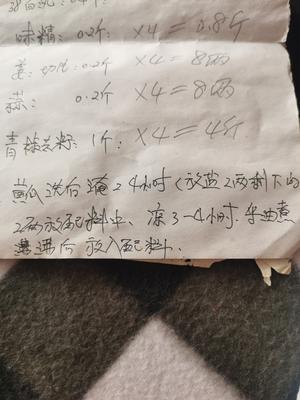 味精：0.2斤 ×4=0.8斤
姜：切片：0.2斤 ×4=8两
蒜： 0.2斤 ×4=8两
青 1斤： ×4=4斤
黄瓜洗后淹24小时（放盐2两剩下的
2两放配料中、凉3-4小时.
后放入配料.